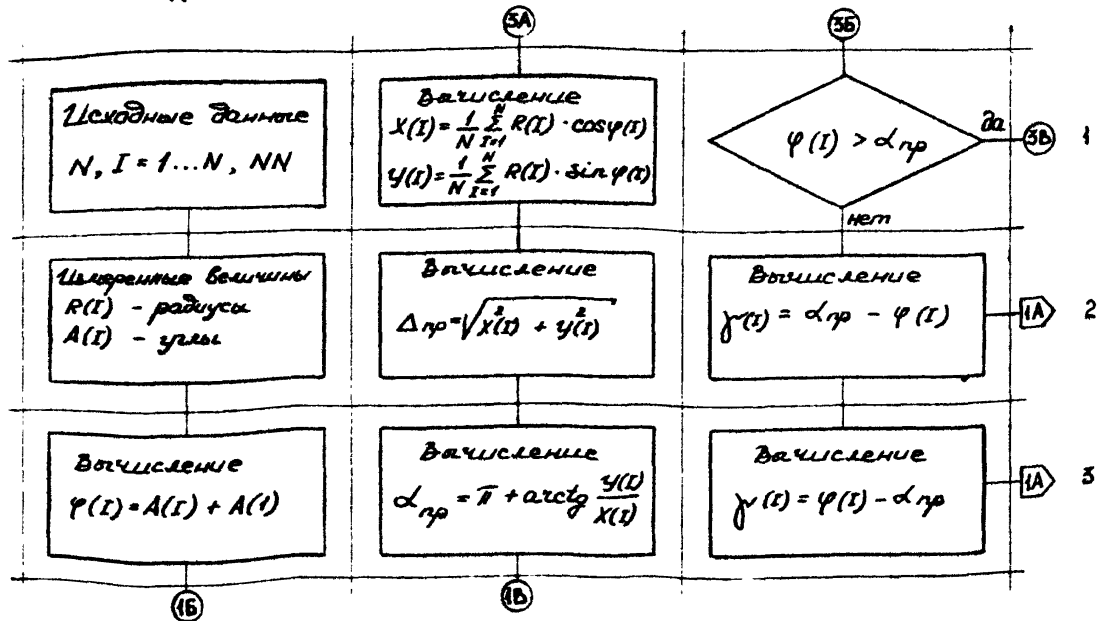 3А
3Б
Исходные данные
N, I = 1...N, NN
Вычисление
X(I) = 1/N N∑I=1 R(I) · cosφ(I)
Y(I) = 1/N N∑I=1 R(I) · sin φ(I)
φ(I) > αпр
да
3В
1
нет
Измеренные величины
R(I) - радиусы
A(I) - углы
Вычисление
Δпр = √X²(I) + Y²(I)
Вычисление
γ(I) = αпр - φ(I)
1А
2
Вычисление
φ(I) = A(I) + A(1)
Вычисление
αпр = π + arctg Y(I)/X(I)
Вычисление
γ(I) = φ(I) - αпр
1А
3
1Б
1В